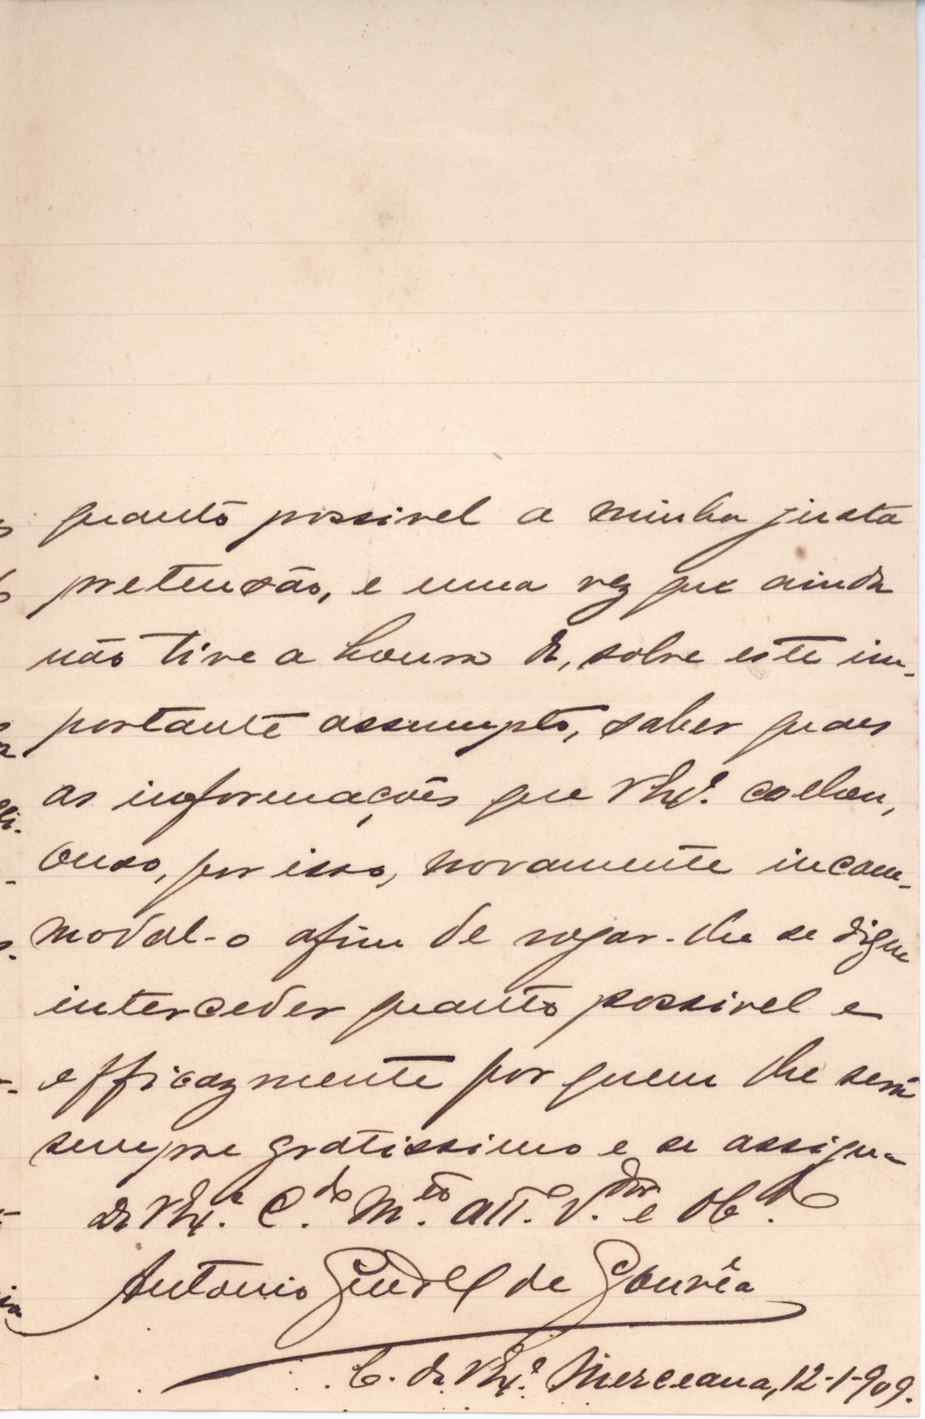 quanto possivel a minha justa
pretensão, e uma vez que ainda
não tive a honra de, sobre este im-
portante assumpto, saber quaes
as informações que V.Ex.ª colheu,
ouso, por isso, novamente incom-
modal-o afim de rogar-lhe se digne
interceder quanto possivel e
efficazmente por quem lhe será
sempre gratissimo e se assigna
de V.Ex.ª C.do M.to Att.º V.dor e Ob.do
Antonio de Gouvêa
C. de V.Ex.ª Merceana, 12-1-909.